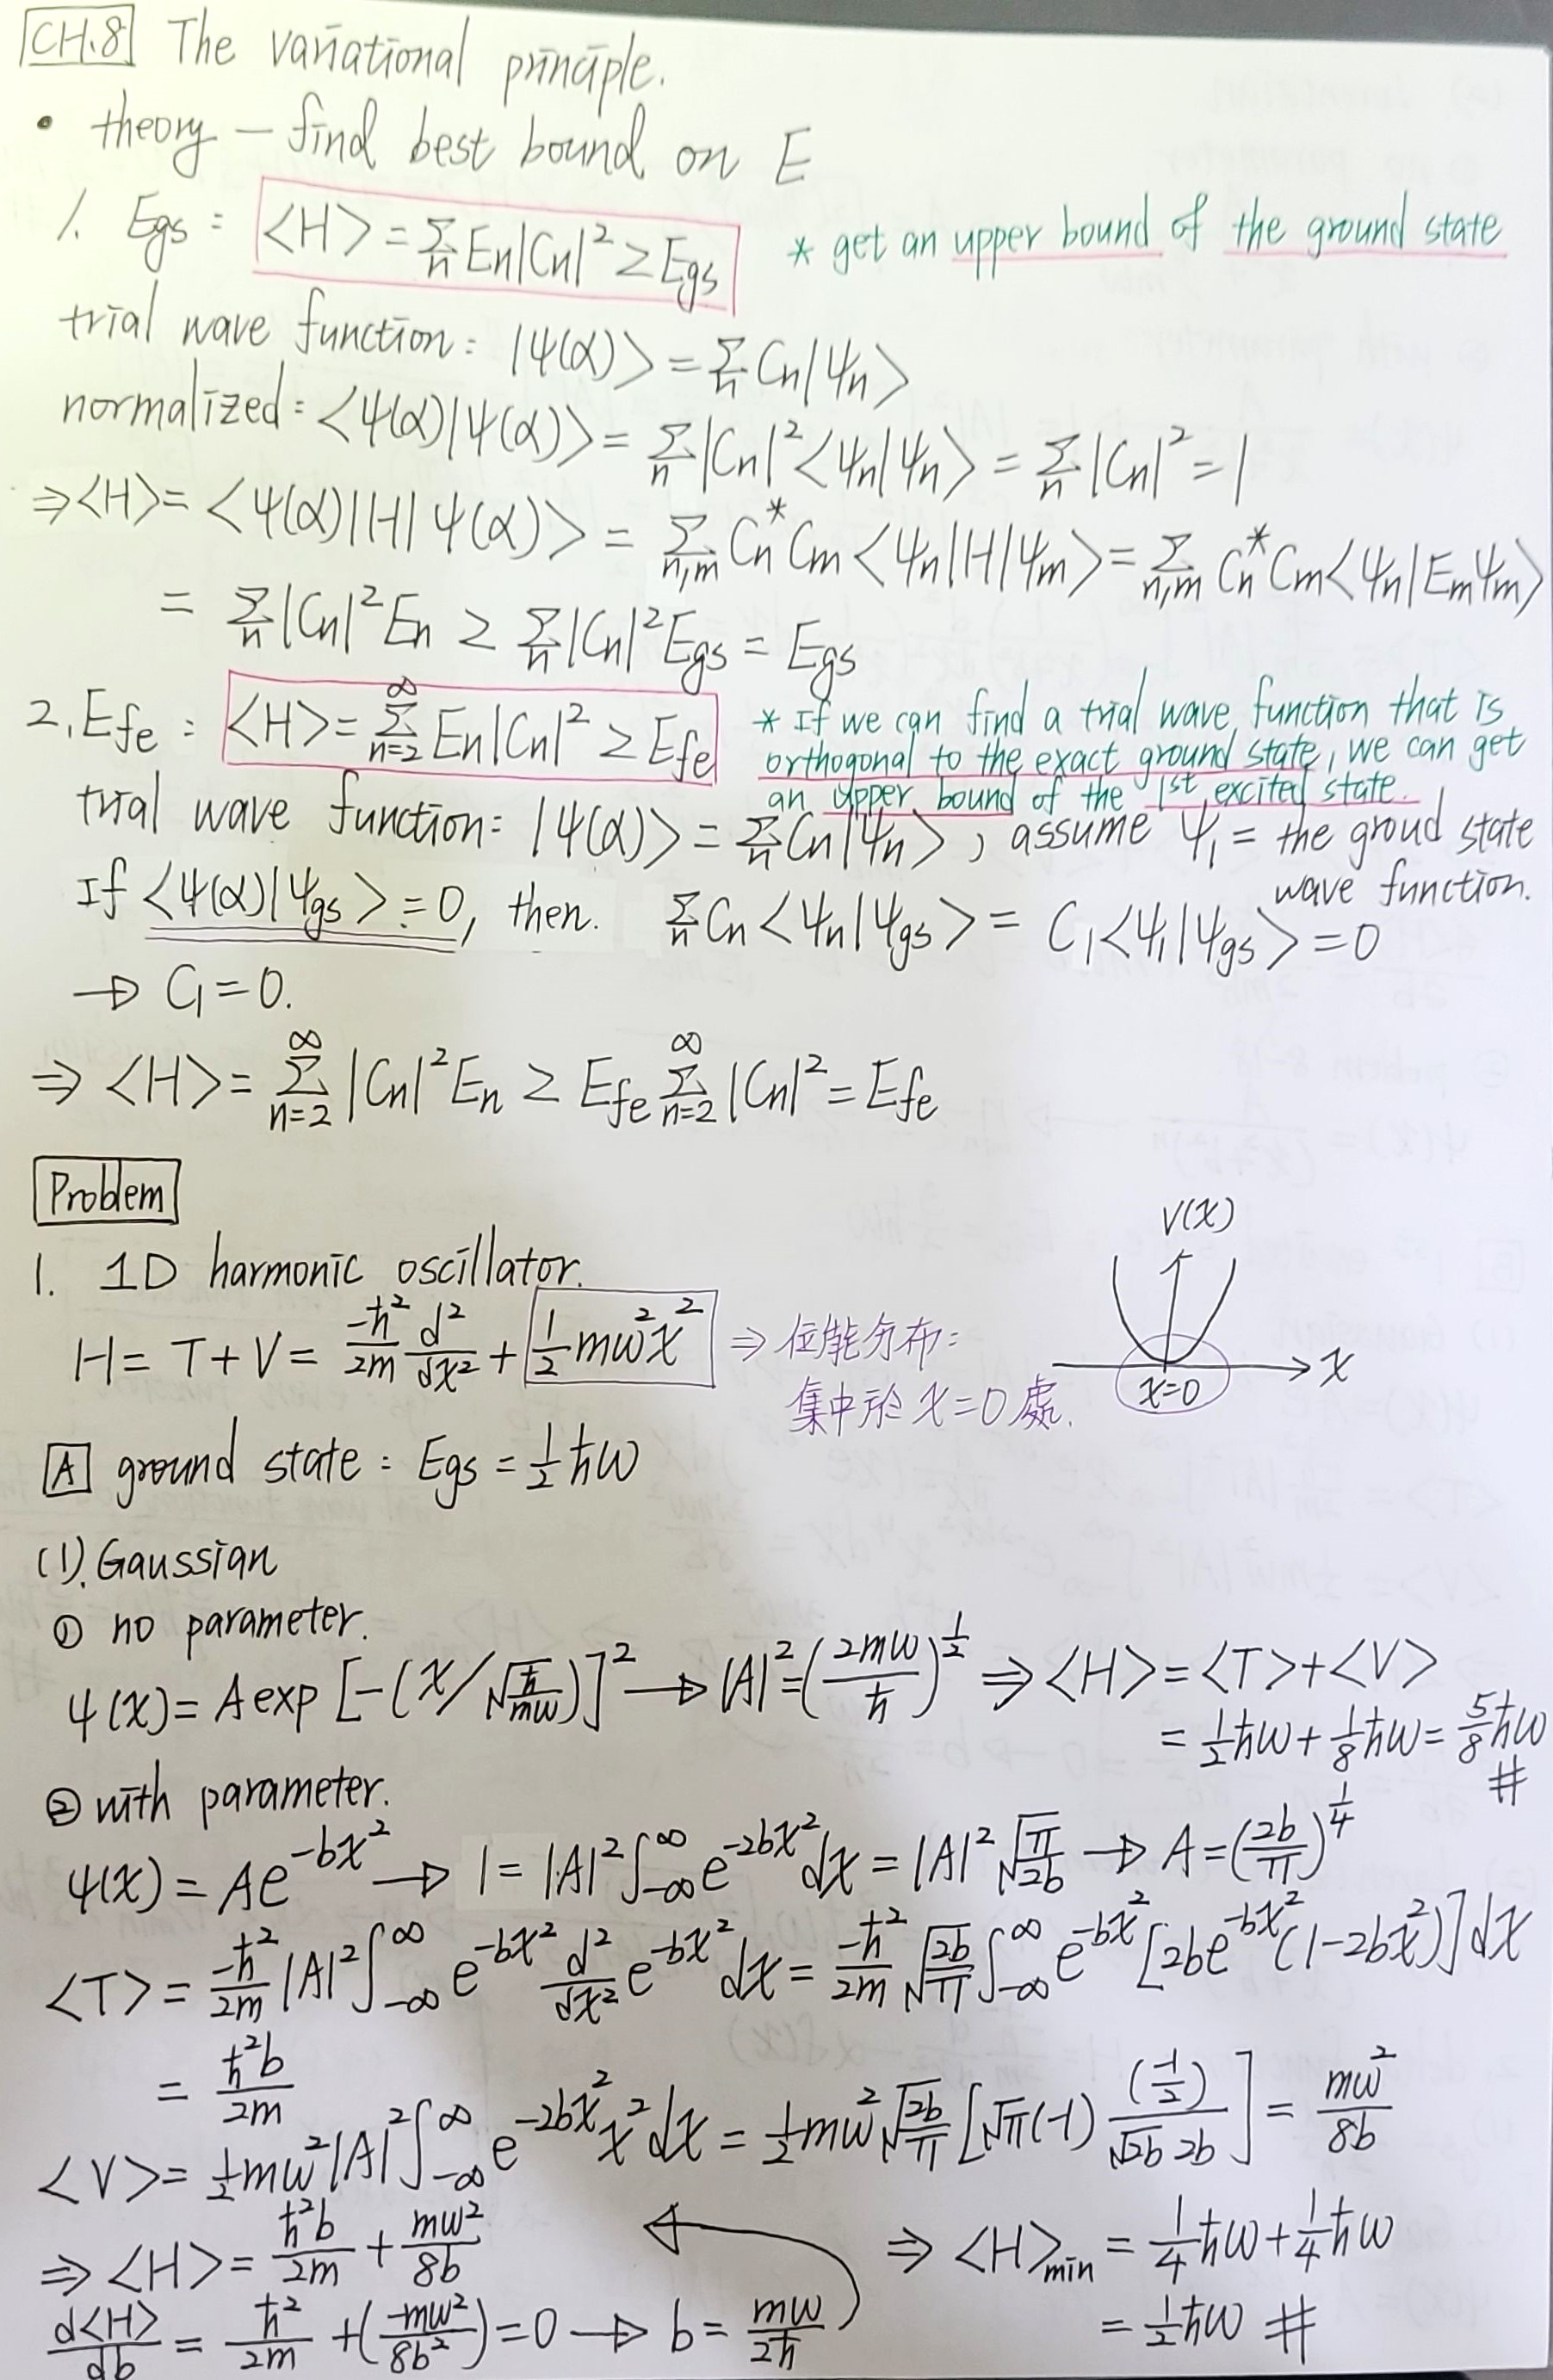 CH.8 The variational principle.
• theory — find best bound on E
1. Egs : <H> = Σ_n En|Cn|² ≥ Egs * get an upper bound of the ground state
trial wave function : |ψ(α)> = Σ_n Cn|ψn>
normalized : <ψ(α)|ψ(α)> = Σ_n |Cn|²<ψn|ψn> = Σ_n |Cn|² = 1
⇒ <H> = <ψ(α)|H|ψ(α)> = Σ_{n,m} Cn* Cm <ψn|H|ψm> = Σ_{n,m} Cn* Cm <ψn|Emψm>
= Σ_n |Cn|² En ≥ Σ_n |Cn|² Egs = Egs
2. Efe : <H> = Σ_{n=2}^∞ En|Cn|² ≥ Efe * If we can find a trial wave function that is
orthogonal to the exact ground state, we can get
an upper bound of the 1st excited state.
trial wave function : |ψ(α)> = Σ_n Cn|ψn> , assume ψ₁ = the groud state
wave function.
If <ψ(α)|ψgs> = 0, then. Σ_n Cn <ψn|ψgs> = C₁<ψ₁|ψgs> = 0
→ C₁ = 0.
⇒ <H> = Σ_{n=2}^∞ |Cn|² En ≥ Efe Σ_{n=2}^∞ |Cn|² = Efe
Problem
1. 1D harmonic oscillator.
V(x)
H = T + V = -ħ²/2m d²/dx² + 1/2 mω²x² ⇒ 位能分布:
集中於 x=0 處.
x=0
x
A ground state : Egs = 1/2 ħω
(1). Gaussian
① no parameter.
ψ(x) = A exp [-(x/√(ħ/mω))]² → |A|² = (2mω/ħ)^(1/2) ⇒ <H> = <T> + <V>
= 1/2 ħω + 1/8 ħω = 5/8 ħω #
② with parameter.
ψ(x) = Ae^(-bx²) → 1 = |A|² ∫_{-∞}^∞ e^(-2bx²) dx = |A|² √(π/2b) → A = (2b/π)^(1/4)
<T> = -ħ²/2m |A|² ∫_{-∞}^∞ e^(-bx²) d²/dx² e^(-bx²) dx = -ħ²/2m √(2b/π) ∫_{-∞}^∞ e^(-bx²) [2be^(-bx²)(1-2bx²)] dx
= ħ²b/2m
<V> = 1/2 mω² |A|² ∫_{-∞}^∞ e^(-2bx²) x² dx = 1/2 mω² √(2b/π) [√π (-1) (-1/2)/(√2b 2b)] = mω²/8b
⇒ <H> = ħ²b/2m + mω²/8b
⇒ <H>min = 1/4 ħω + 1/4 ħω
d<H>/db = ħ²/2m + (-mω²/8b²) = 0 → b = mω/2ħ
= 1/2 ħω #